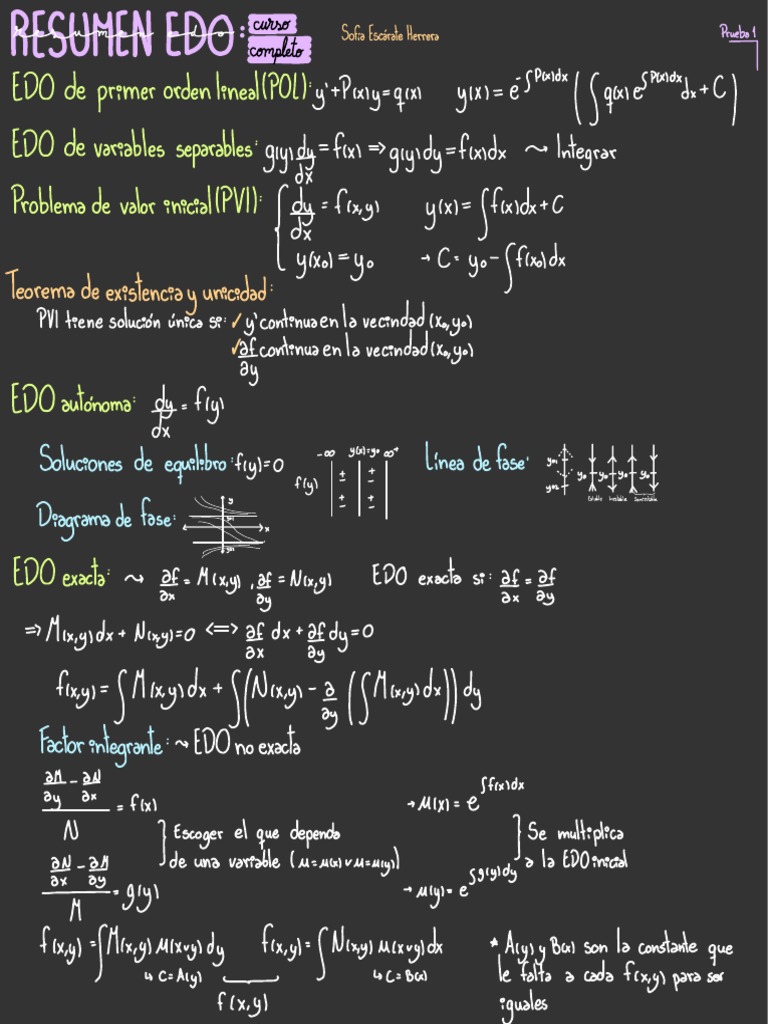 RESUMEN EDO: curso completo
Sofía Escárate Herrera
Prueba 1
EDO de primer orden lineal (POL): y' + P(x)y = q(x) y(x) = e^{-∫P(x)dx} (∫q(x) e^{∫P(x)dx} dx + C)
EDO de variables separables: g(y) dy/dx = f(x) => g(y)dy = f(x)dx ~> Integrar
Problema de valor inicial (PVI): { dy/dx = f(x,y) y(x) = ∫f(x)dx + C
y(x₀) = y₀ → C = y₀ - ∫f(x₀)dx
Teorema de existencia y unicidad:
PVI tiene solución única si: ✓ y' continua en la vecindad (x₀,y₀)
✓ ∂f/∂y continua en la vecindad (x₀,y₀)
EDO autónoma: dy/dx = f(y)
Soluciones de equilibro: f(y)=0
-∞ y(x)=y₀ ∞⁺
f(y) | ± | ± |
± ±
Línea de fase:
y₀ y₀ y₀ y₀
Estable Inestable Semiestable
Diagrama de fase:
y
x
EDO exacta: ~> ∂f/∂x = M(x,y), ∂f/∂y = N(x,y) EDO exacta si: ∂f/∂x = ∂f/∂y
=> M(x,y)dx + N(x,y)=0 <=> ∂f/∂x dx + ∂f/∂y dy = 0
f(x,y) = ∫M(x,y)dx + ∫(N(x,y) - ∂/∂y (∫M(x,y)dx)) dy
Factor integrante: ~> EDO no exacta
(∂M/∂y - ∂N/∂x)/N = f(x) → μ(x) = e^{∫f(x)dx}
} Escoger el que dependa
de una variable (μ=μ(x) ∨ μ=μ(y))
} Se multiplica
a la EDO inicial
(∂N/∂x - ∂M/∂y)/M = g(y) → μ(y) = e^{∫g(y)dy}
f(x,y) = ∫M(x,y) μ(x∨y) dy f(x,y) = ∫N(x,y) μ(x∨y) dx
↳ C = A(y) ↳ C = B(x)
f(x,y)
* A(y) y B(x) son la constante que
le falta a cada f(x,y) para ser
iguales